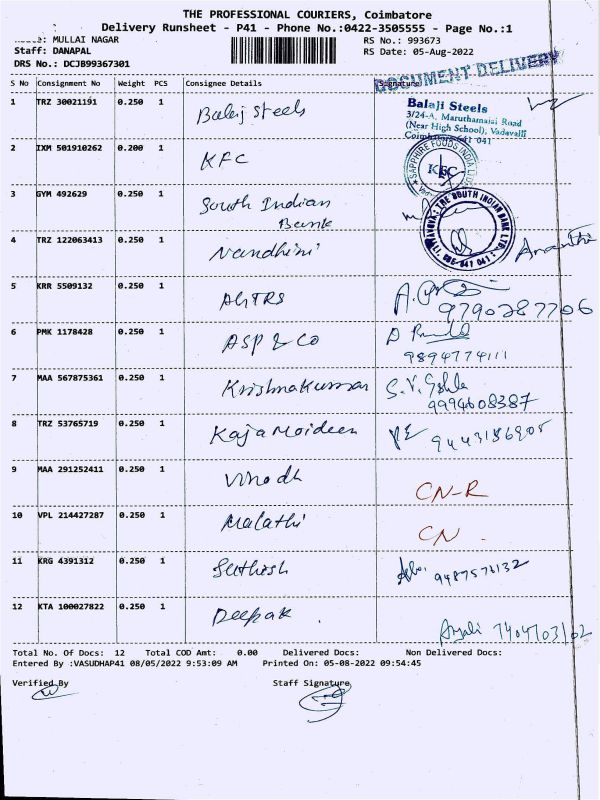 THE PROFESSIONAL COURIERS, Coimbatore
Delivery Runsheet - P41 - Phone No.:0422-3505555 - Page No.:1
MULLAI NAGAR RS No.: 993673
Staff: DANAPAL RS Date: 05-Aug-2022
DRS No.: DCJB99367301
DOCUMENT DELIVERY
S No Consignment No Weight PCS Consignee Details Signature
1 TRZ 30021191 0.250 1 Balaji Steels
Balaji Steels
3/24-A, Maruthamalai Road
(Near High School), Vadavalli
Coimbatore-641 041
2 IXM 501910262 0.200 1 KFC
SAPPHIRE FOODS INDIA LTD
KFC
3 GYM 492629 0.250 1 South Indian
Bank
THE SOUTH INDIAN BANK LTD.
641 041
4 TRZ 122063413 0.250 1 Nandhini
5 KRR 5509132 0.250 1 9790287706
6 PMK 1178428 0.250 1 ASP & CO
9894774111
7 MAA 567875361 0.250 1 Krishnakumar
9994608387
8 TRZ 53765719 0.250 1 Kaja Moideen
9 MAA 291252411 0.250 1 Vinodh CN-R
10 VPL 214427287 0.250 1 Malathi CN
11 KRG 4391312 0.250 1 Sathish
12 KTA 100027822 0.250 1 Deepak Anjali
Total No. Of Docs: 12 Total COD Amt: 0.00 Delivered Docs: Non Delivered Docs:
Entered By :VASUDHAP41 08/05/2022 9:53:09 AM Printed On: 05-08-2022 09:54:45
Verified By Staff Signature